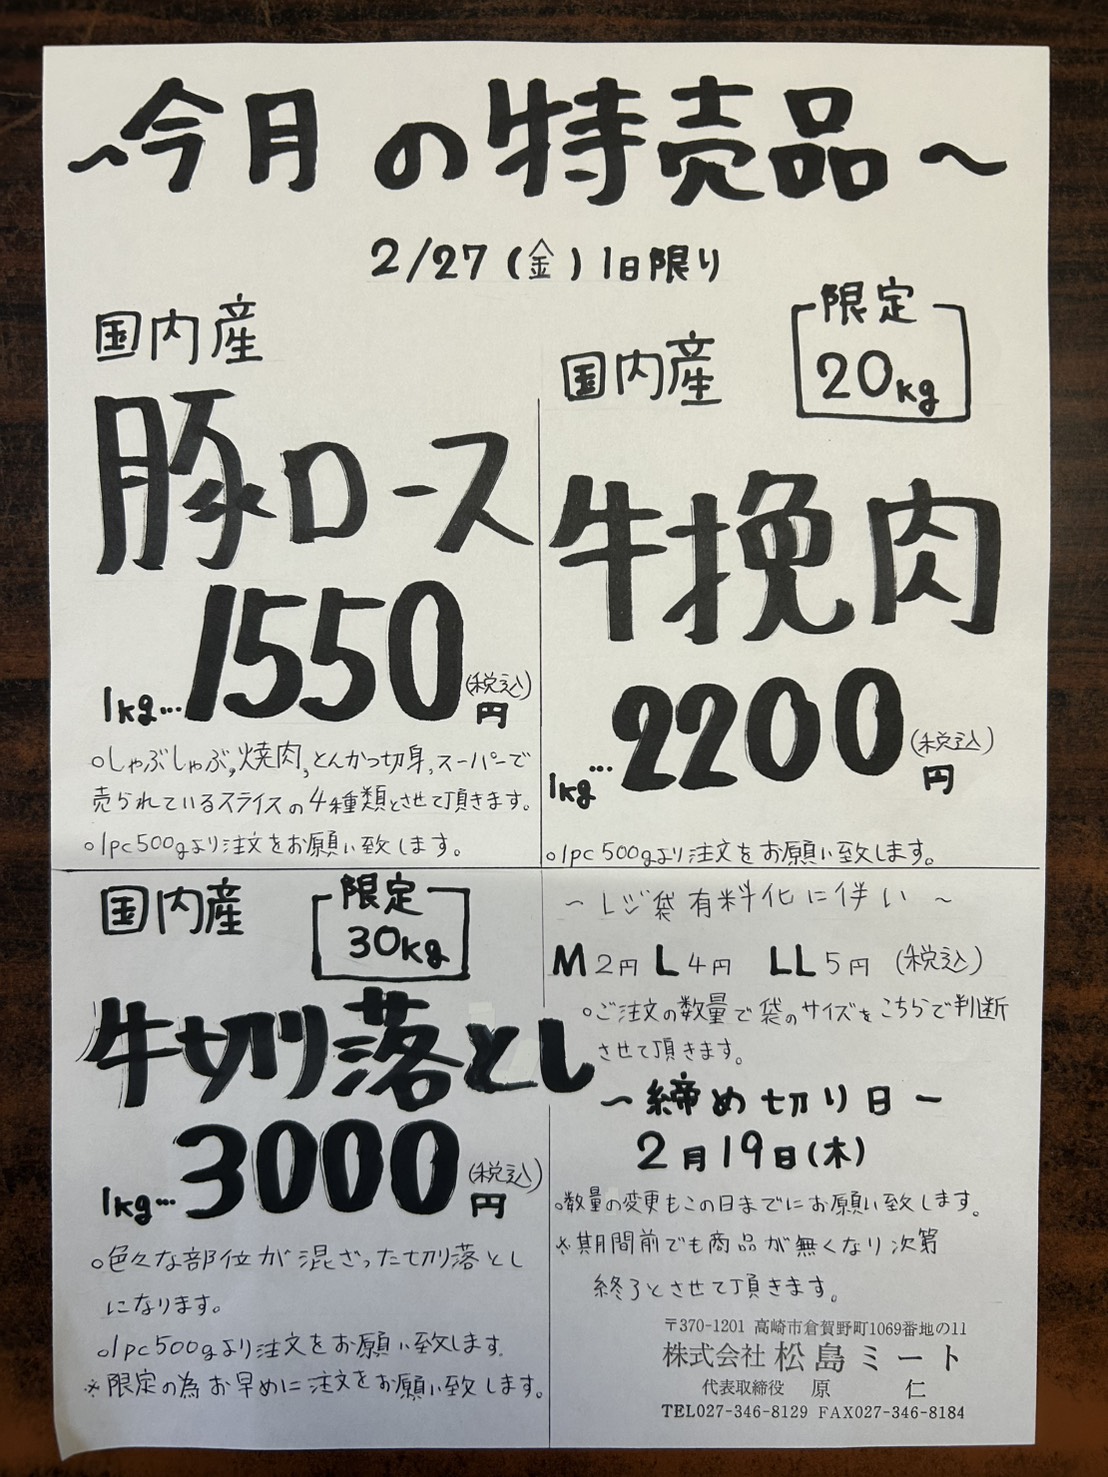 ～今月の特売品～
2/27(金)1日限り
国内産
豚ロース
1kg…1550円(税込)
○しゃぶしゃぶ,焼肉,とんかつ切身,スーパーで
売られているスライスの4種類とさせて頂きます。
○1pc500gより注文をお願い致します。
国内産
限定
20kg
牛挽肉
1kg…2200円(税込)
○1pc500gより注文をお願い致します。
国内産
限定
30kg
牛切り落とし
1kg…3000円(税込)
○色々な部位が混ざった切り落とし
になります。
○1pc500gより注文をお願い致します。
※限定の為お早めに注文をお願い致します。
～レジ袋有料化に伴い～
M2円 L4円 LL5円(税込)
○ご注文の数量で袋のサイズをこちらで判断
させて頂きます。
～締め切り日～
2月19日(木)
○数量の変更もこの日までにお願い致します。
※期間前でも商品が無くなり次第
終了とさせて頂きます。
〒370-1201 高崎市倉賀野町1069番地の11
株式会社 松島ミート
代表取締役 原 仁
TEL027-346-8129 FAX027-346-8184